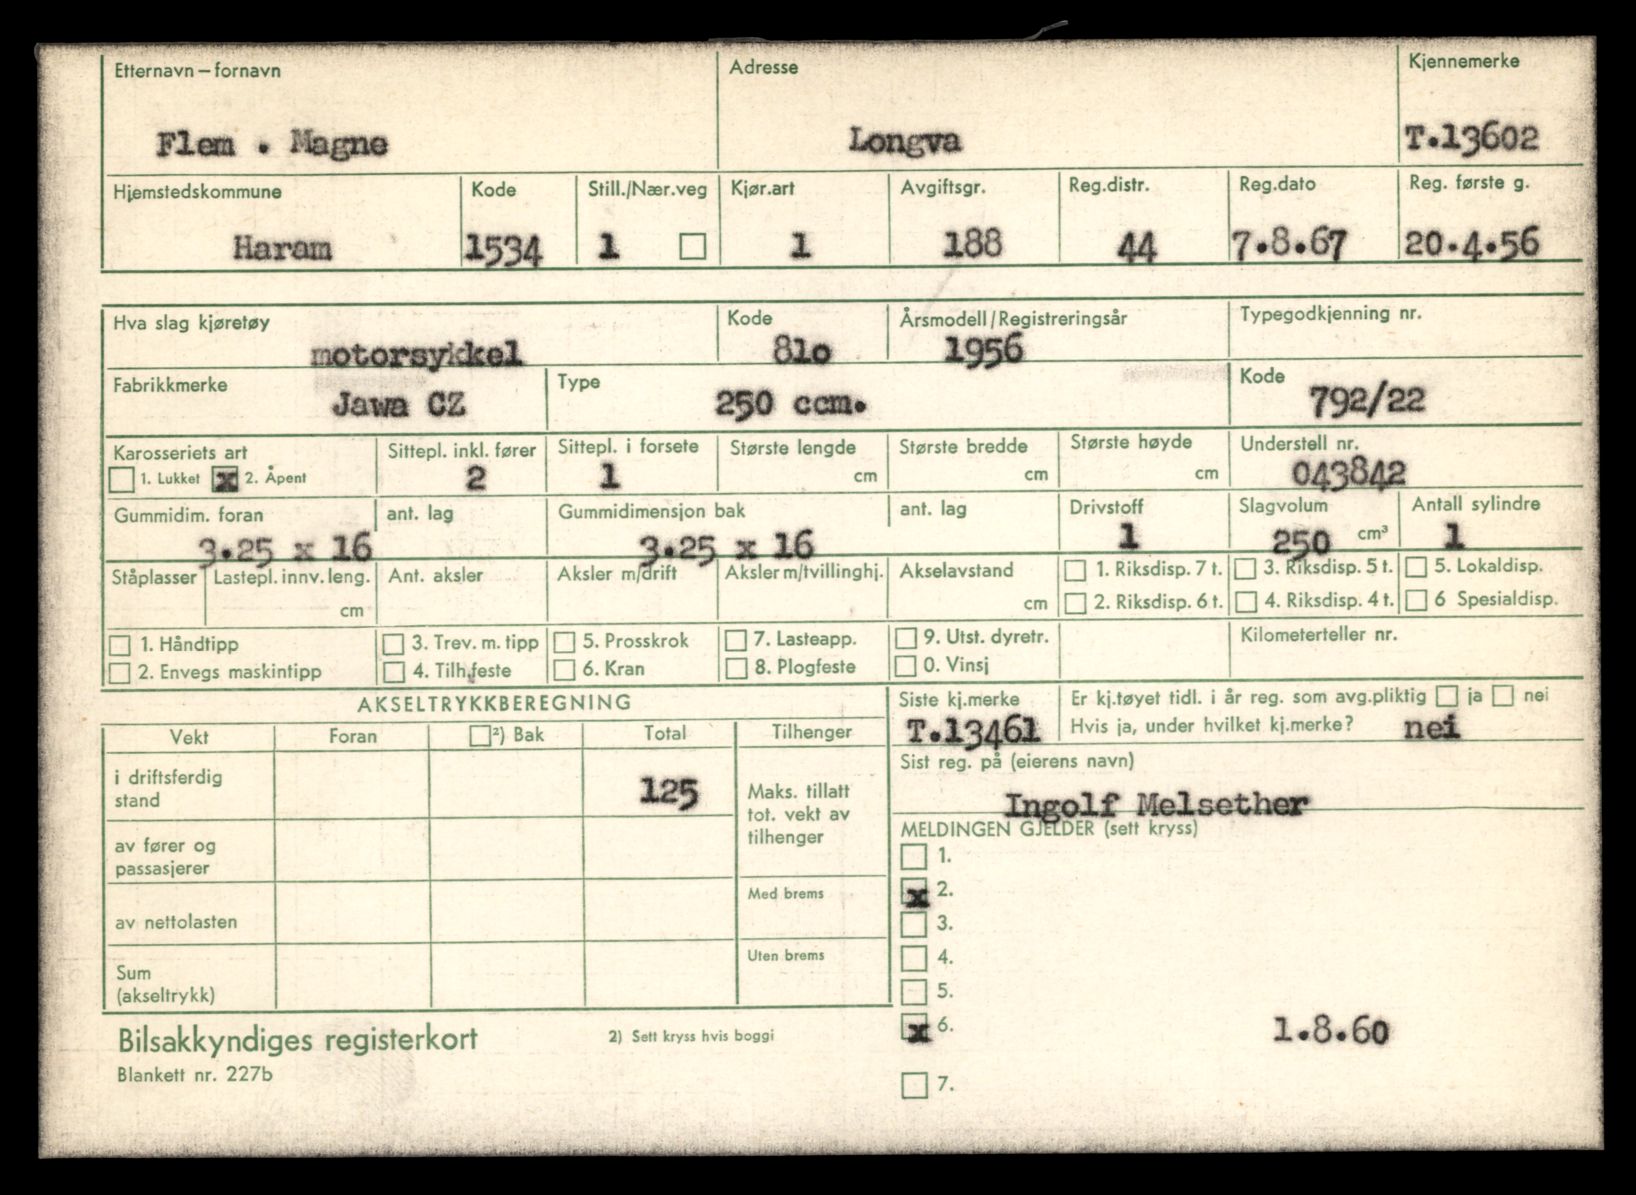 Etternavn – fornavn Adresse Kjennemerke
Flem . Magne Longva T.13602
Hjemstedskommune Kode Still./Nær.veg Kjør.art Avgiftsgr. Reg.distr. Reg.dato Reg. første g.
Haram 1534 1 1 188 44 7.8.67 20.4.56
Hva slag kjøretøy Kode Årsmodell/Registreringsår Typegodkjenning nr.
motorsykkel 81o 1956
Fabrikkmerke Type Kode
Jawa CZ 250 ccm. 792/22
Karosseriets art Sittepl. inkl. fører Sittepl. i forsete Største lengde Største bredde Største høyde Understell nr.
1. Lukket x 2. Åpent 2 1 cm cm cm 043842
Gummidim. foran ant. lag Gummidimensjon bak ant. lag Drivstoff Slagvolum Antall sylindre
3.25 x 16 3.25 x 16 1 250 cm³ 1
Ståplasser Lastepl. innv. leng. Ant. aksler Aksler m/drift Aksler m/tvillinghj. Akselavstand 1. Riksdisp. 7 t. 3. Riksdisp. 5 t. 5. Lokaldisp.
cm cm 2. Riksdisp. 6 t. 4. Riksdisp. 4 t. 6 Spesialdisp.
1. Håndtipp 3. Trev. m. tipp 5. Prosskrok 7. Lasteapp. 9. Utst. dyretr. Kilometerteller nr.
2. Envegs maskintipp 4. Tilh.feste 6. Kran 8. Plogfeste 0. Vinsj
AKSELTRYKKBEREGNING
Vekt Foran ²) Bak Total Tilhenger
i driftsferdig stand 125
Maks. tillatt tot. vekt av tilhenger
av fører og passasjerer
Med brems
av nettolasten
Uten brems
Sum (akseltrykk)
Siste kj.merke Er kj.tøyet tidl. i år reg. som avg.pliktig ja nei
T.13461 Hvis ja, under hvilket kj.merke? nei
Sist reg. på (eierens navn)
Ingolf Melsether
MELDINGEN GJELDER (sett kryss)
1.
x 2.
3.
4.
5.
x 6. 1.8.60
7.
Bilsakkyndiges registerkort 2) Sett kryss hvis boggi
Blankett nr. 227b